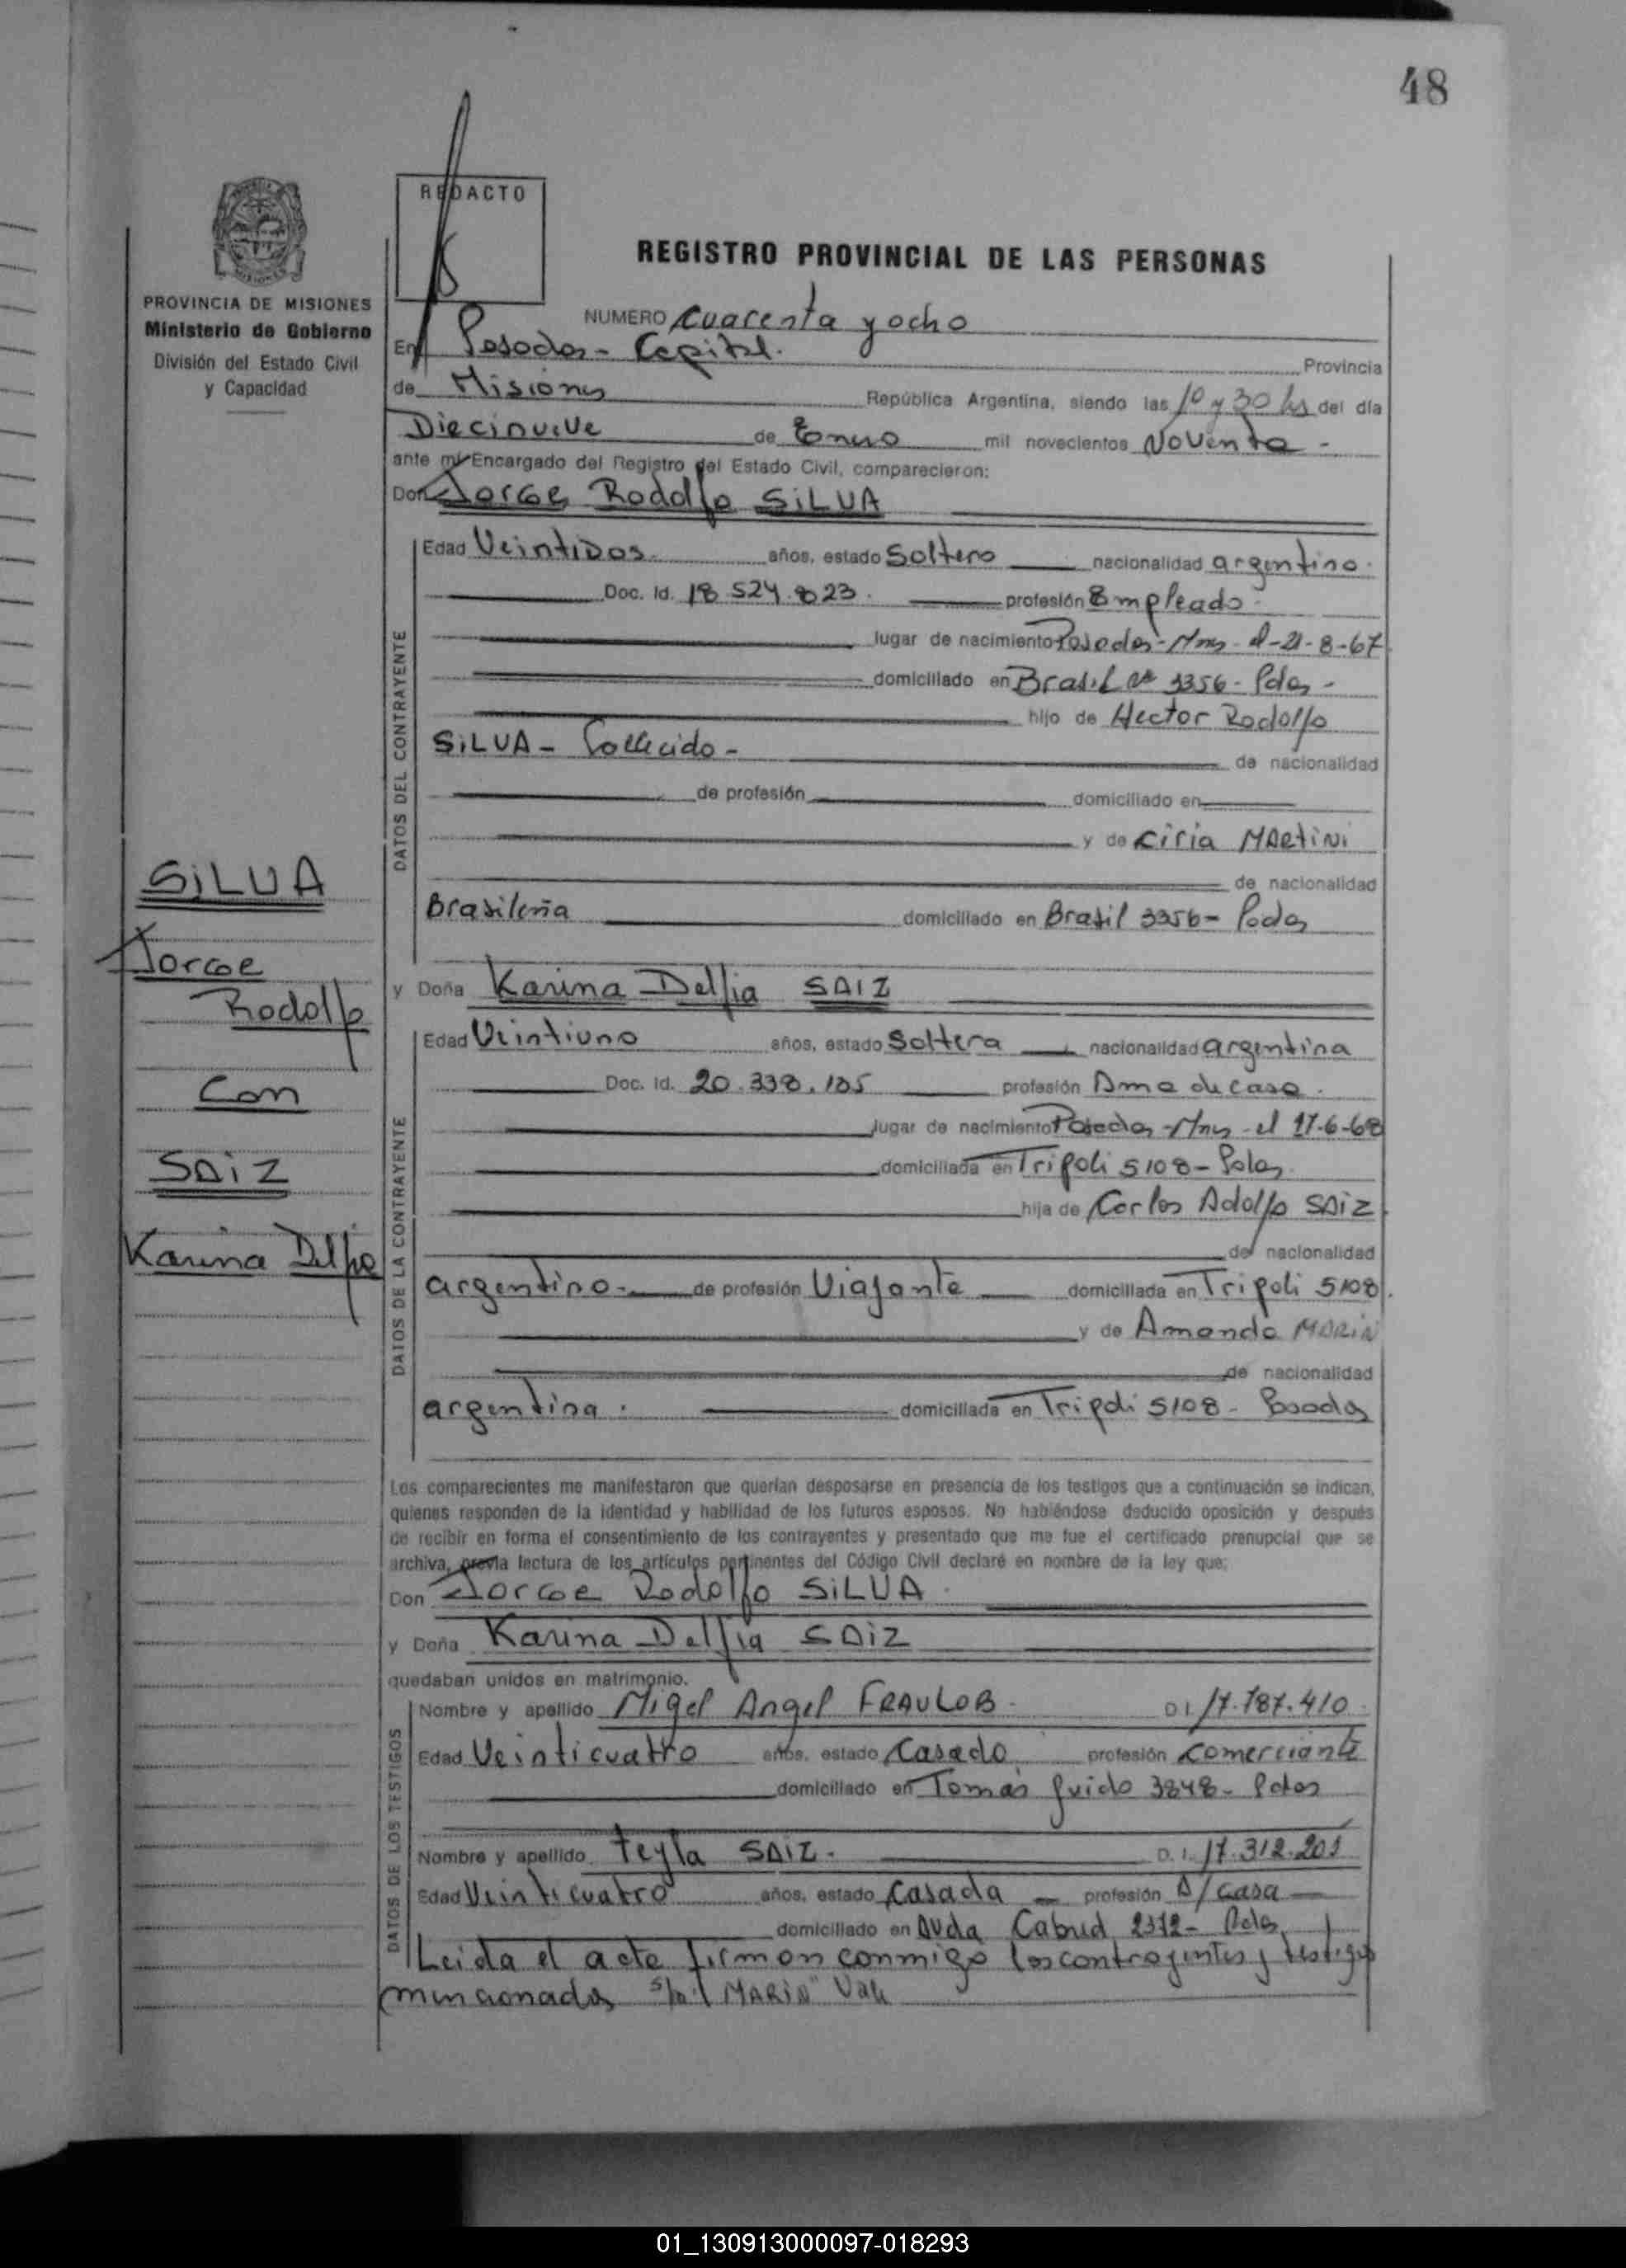 48
REDACTO
REGISTRO PROVINCIAL DE LAS PERSONAS
PROVINCIA DE MISIONES
Ministerio de Gobierno
División del Estado Civil
y Capacidad
NUMERO Cuarenta y ocho
En Posadas - Capital. Provincia
de Misiones República Argentina, siendo las 10 y 30 hs del día
Diecinueve de Enero mil novecientos Noventa -
ante mí Encargado del Registro del Estado Civil, comparecieron:
Don Jorge Rodolfo SILVA
DATOS DEL CONTRAYENTE
Edad Veintidos años, estado Soltero nacionalidad argentino.
Doc. Id. 18.524.823. profesión Empleado
lugar de nacimiento Posadas - Mnes - el - 21-8-67
domiciliado en Brasil Nº 3356 - Pdas -
hijo de Hector Rodolfo
SILVA - Fallecido - de nacionalidad
de profesión domiciliado en
y de Ciria MARTINI
de nacionalidad
Brasileña domiciliado en Brasil 3356 - Pdas
y Doña Karina Delfia SAIZ
DATOS DE LA CONTRAYENTE
Edad Veintiuno años, estado Soltera nacionalidad argentina
Doc. Id. 20.338.185 profesión Ama de casa.
lugar de nacimiento Posadas - Mnes - el 17-6-68
domiciliada en Tripoli 5108 - Pdas
hija de Carlos Adolfo SAIZ
de nacionalidad
argentino - de profesión Viajante domiciliada en Tripoli 5108.
y de Amanda MARIN
de nacionalidad
argentina. domiciliada en Tripoli 5108 - Posadas
SILVA
Jorge
Rodolfo
Con
SAIZ
Karina Delfia
Los comparecientes me manifestaron que querían desposarse en presencia de los testigos que a continuación se indican,
quienes responden de la identidad y habilidad de los futuros esposos. No habiéndose deducido oposición y después
de recibir en forma el consentimiento de los contrayentes y presentado que me fue el certificado prenupcial que se
archiva, previa lectura de los artículos pertinentes del Código Civil declaré en nombre de la ley que:
Don Jorge Rodolfo SILVA
y Doña Karina Delfia SAIZ
quedaban unidos en matrimonio.
DATOS DE LOS TESTIGOS
Nombre y apellido Migel Angel FRAULOB - D.I. 17.787.410
Edad Veinticuatro años, estado Casado profesión Comerciante
domiciliado en Tomás Guido 3848 - Pdas
Nombre y apellido Teyla SAIZ - D.I. 17.312.201
Edad Veinticuatro años, estado Casada - profesión A/ casa
domiciliado en Avda Cabred 2372 - Pdas
Leida el acta firman conmigo los contrayentes y testigos
mencionados s/r: "MARIN" Vale
01_130913000097-018293